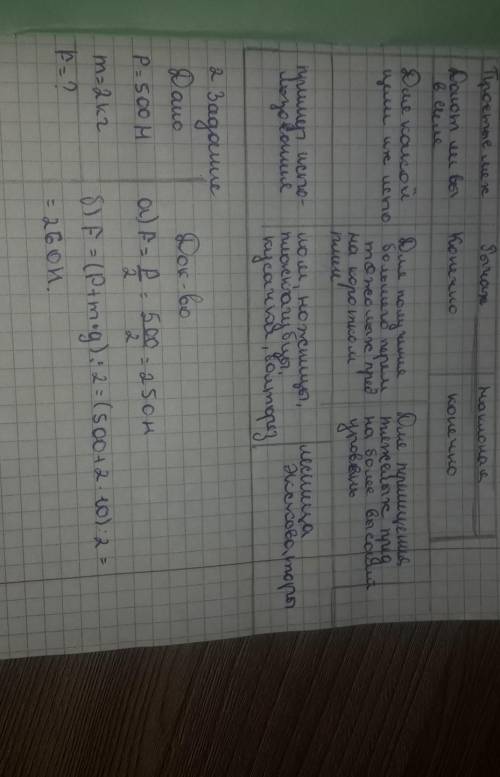 Простые мех
Рычаг
Наклоная
Дают ли вы
в силе
Конечно
конечно
Для какой
цели их испо
Для получение
большого
тяжелых пред
на коротком
Для перемищения
тяжелых пред
на более высокий
уровень
пример испо-
льзования
лом, ножницы,
плоскагубцы,
кусачка, болторез
лесница
Экскаваторы
2 Задание
Дано
P=500Н
m=2кг
F=?
Док-во
а) F=P/2=500/2=250Н
б) F=(P+m•g):2=(500+2·10):2=
=260Н.